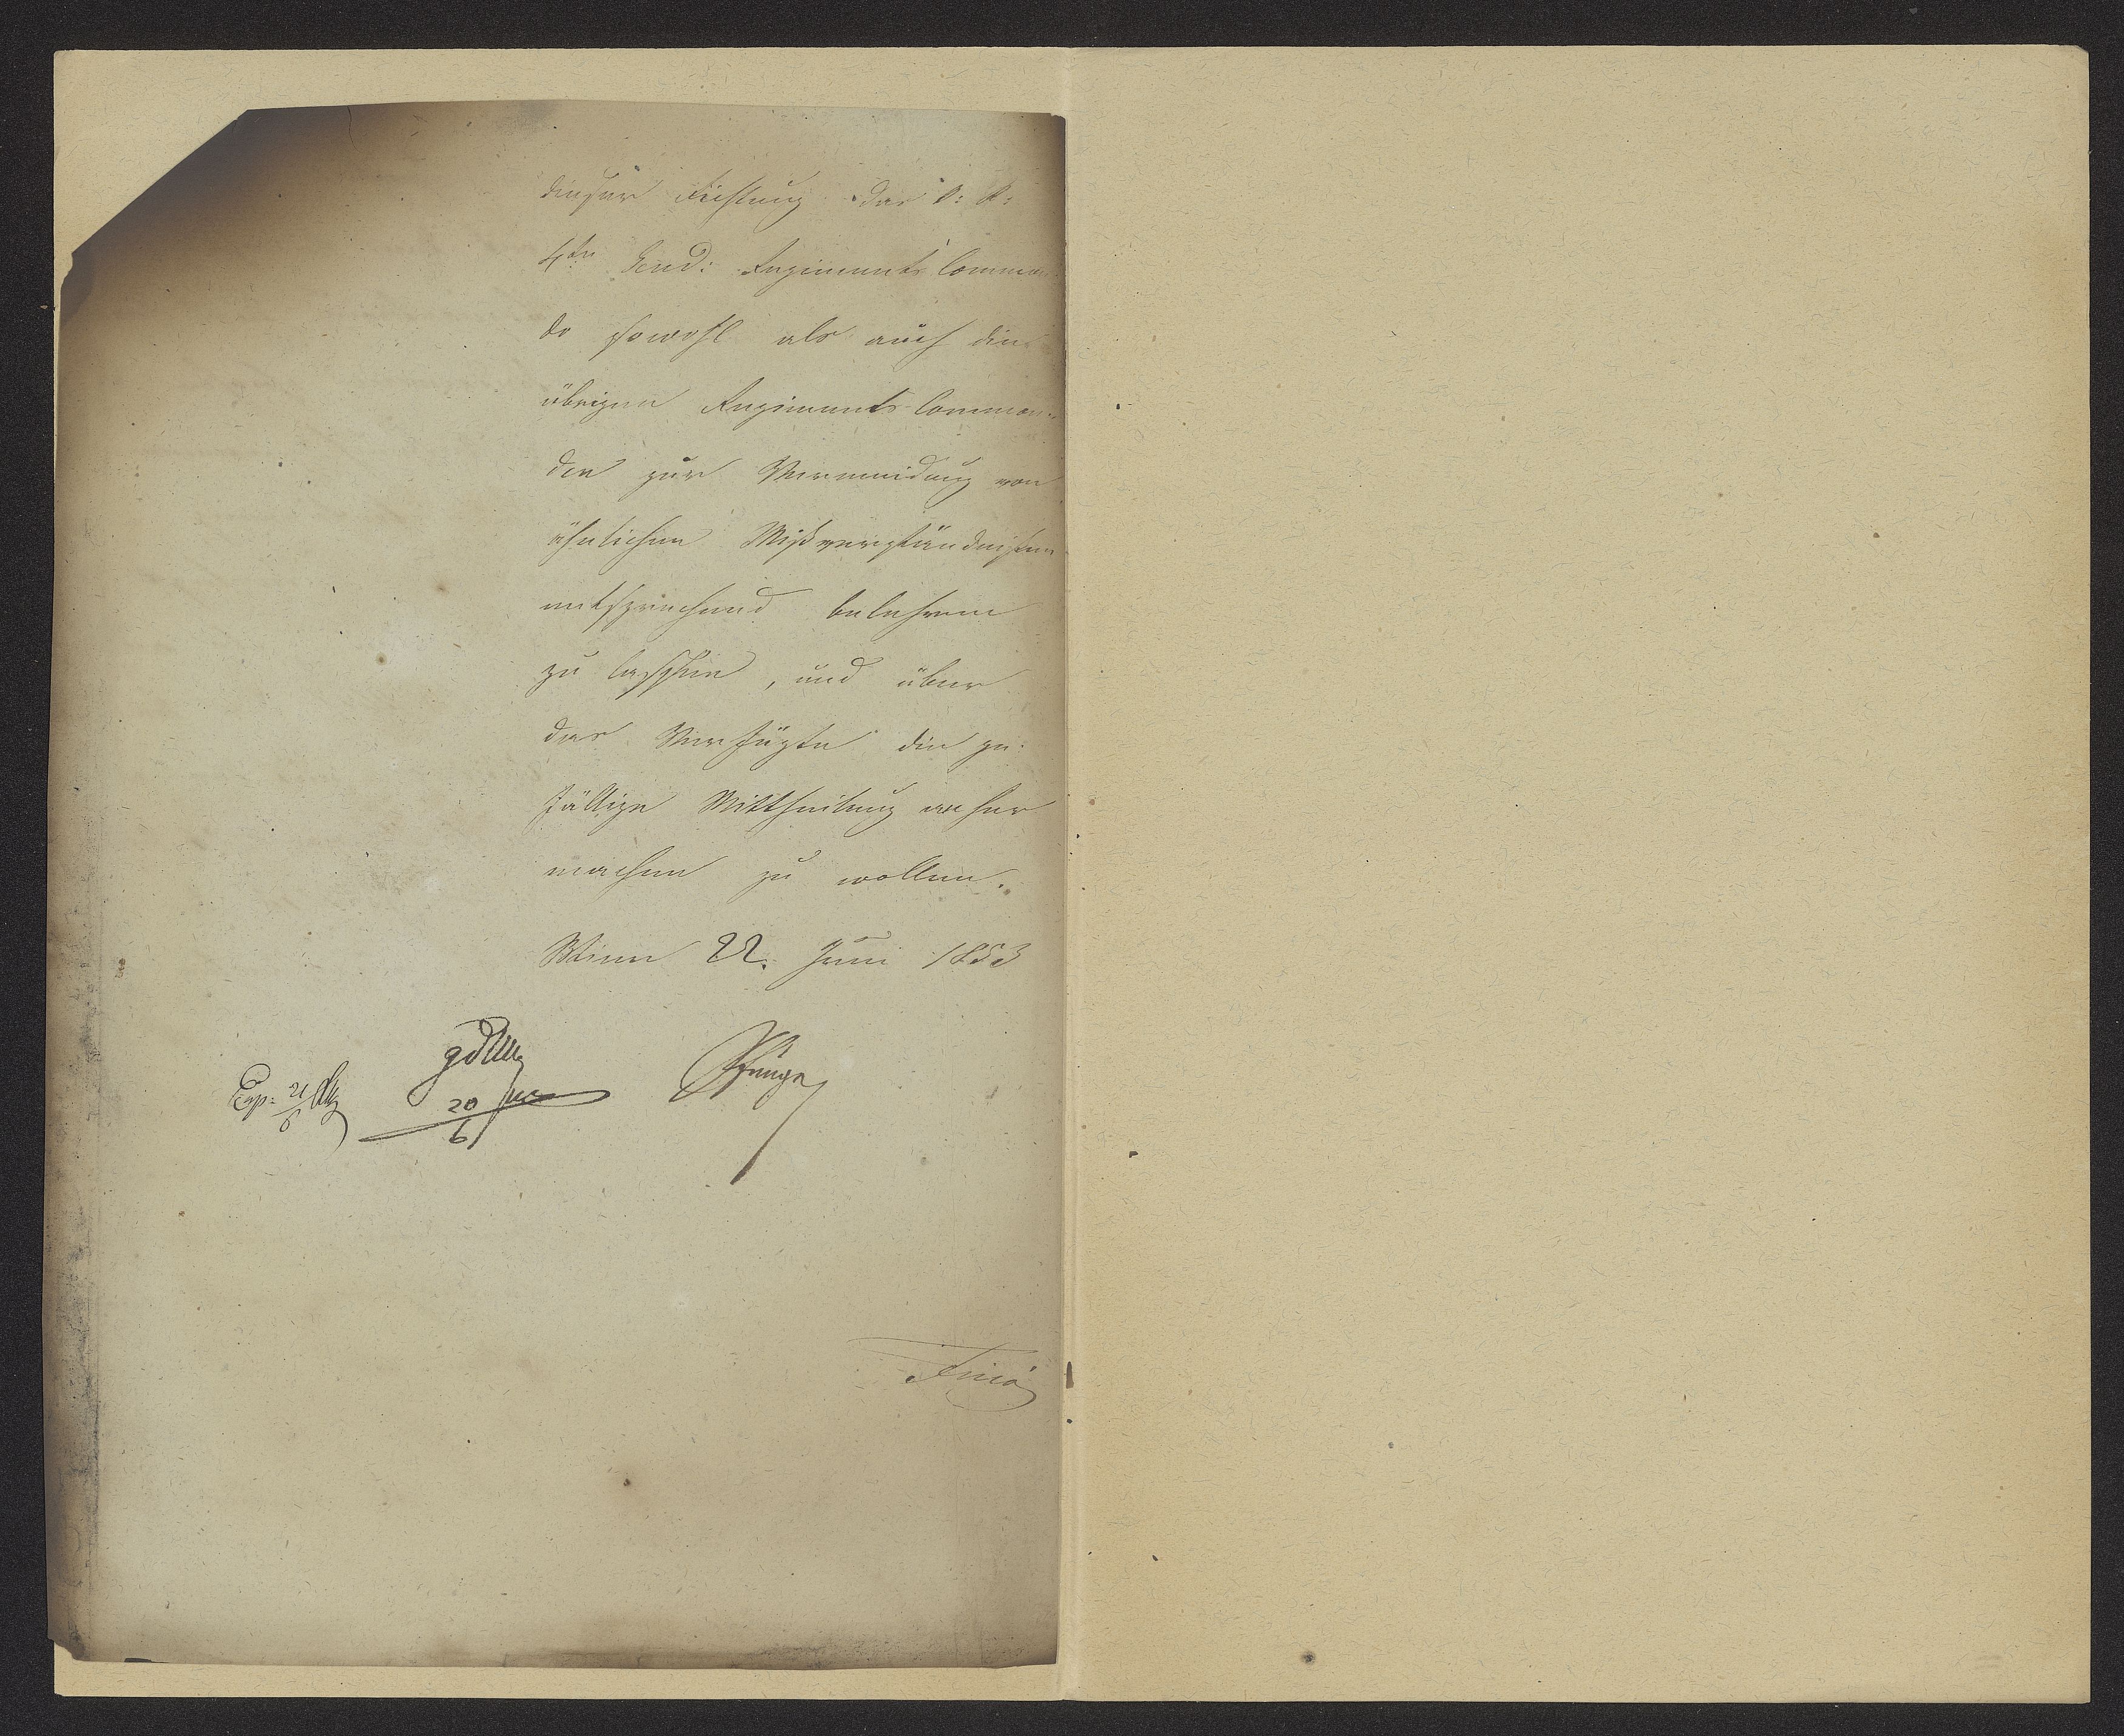 dieser Richtung das k: k:
4te Gend: Regiments Comman
do sowohl als auch die
übrigen Regiments Comman-
den zur Vermeidung von
ähnlichen Mißverständnißen
entsprechend belehren
zu lassen, und über
das Verfügte die ge-
fällige Mittheilung anher
machen zu wollen.
Wien 22. Juni 1853
Exp: 21/6
20/6